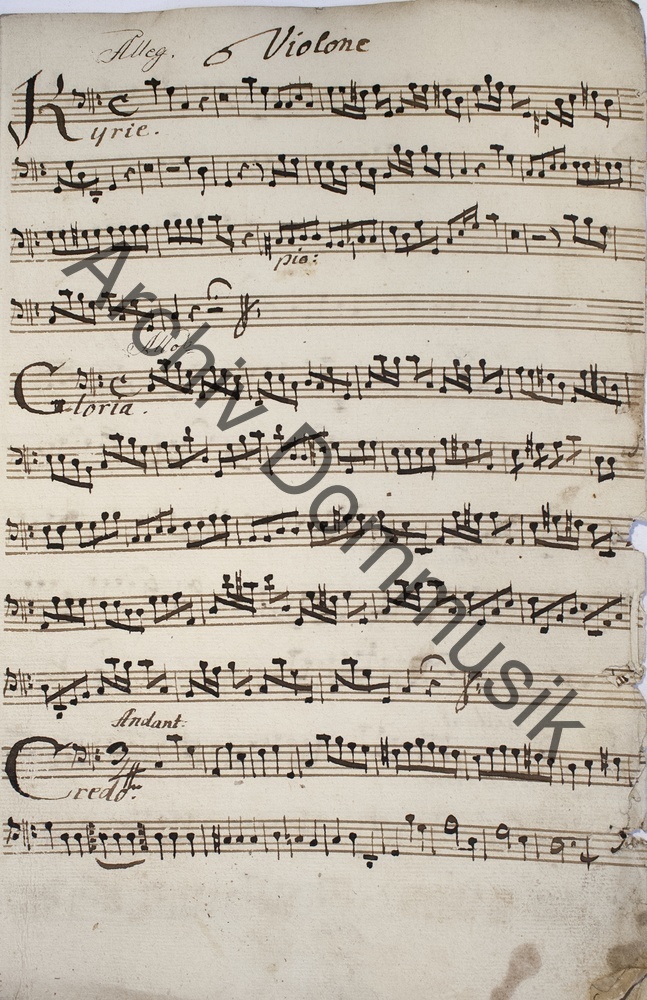 Alleg. Violone
Kyrie.
pio:
Allo
Gloria.
Andant:
Credo.
Archiv Dommusik